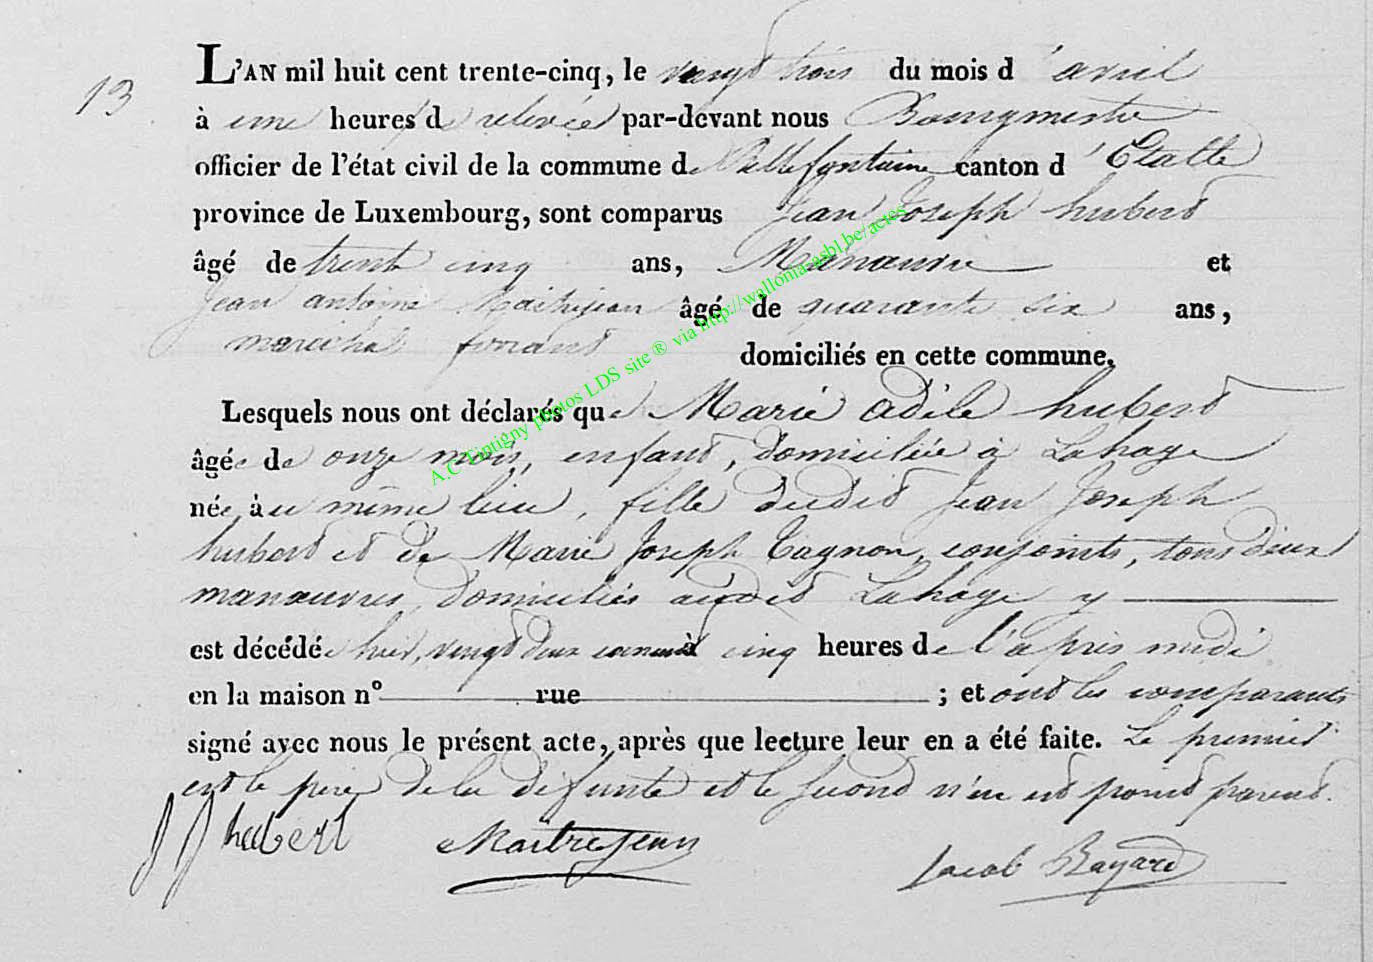 13
L'AN mil huit cent trente-cinq, le vingt trois du mois d'avril
à une heures de relevée par-devant nous Bourgmestre
officier de l'état civil de la commune de Bellefontaine canton d'Etalle
province de Luxembourg, sont comparus Jean Joseph hubert
âgé de trente cinq ans, Manœuvre et
Jean antoine Maitrejean âgé de quarante six ans,
marechal ferrant domiciliés en cette commune,
Lesquels nous ont déclarés que Marie adèle hubert
âgée de onze mois, enfant, domiciliée à Lahage
née au même lieu, fille dudit Jean Joseph
hubert et de Marie Joseph Tagnon, conjoints, tous deux
manœuvres, domiciliés audit Lahage y
est décédée hier, vingt deux courant à cinq heures de l'après midi
en la maison n° rue ; et ont les comparants
signé avec nous le présent acte, après que lecture leur en a été faite. Le premier
est le père de la défunte et le second n'en est point parent.
JJ hubert Maitrejean Jacob Bayard
A.C Tintigny photos LDS site ® via http://wallonia-asbl.be/actes